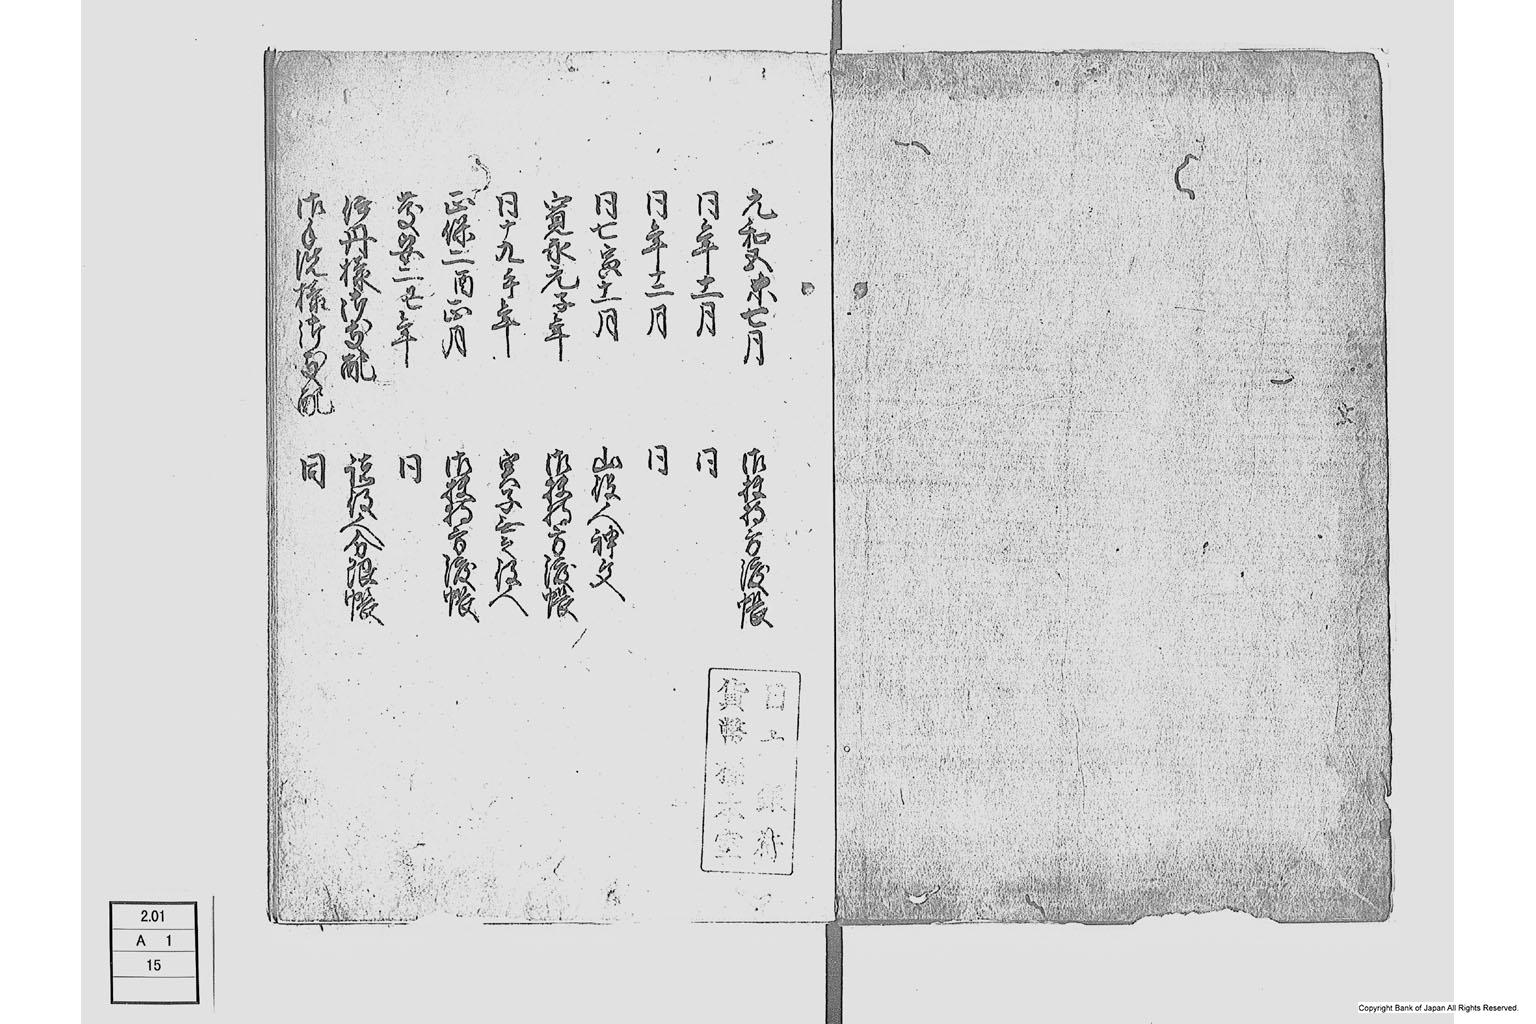 元和五未七月　御扶持方渡帳
同年十一月　同
同年十二月　同
同七寅十一月　山役人神文
寛永元子年　御扶持方渡帳
同十九午年　実子無之役人
正保二酉正月　御扶持方渡帳
慶安二丑年　同
伊丹様御支配　諸役人分限帳
御手洗様御支配　同
日本銀行
貨幣標本室
2.01
A 1
15
Copyright Bank of Japan All Rights Reserved.